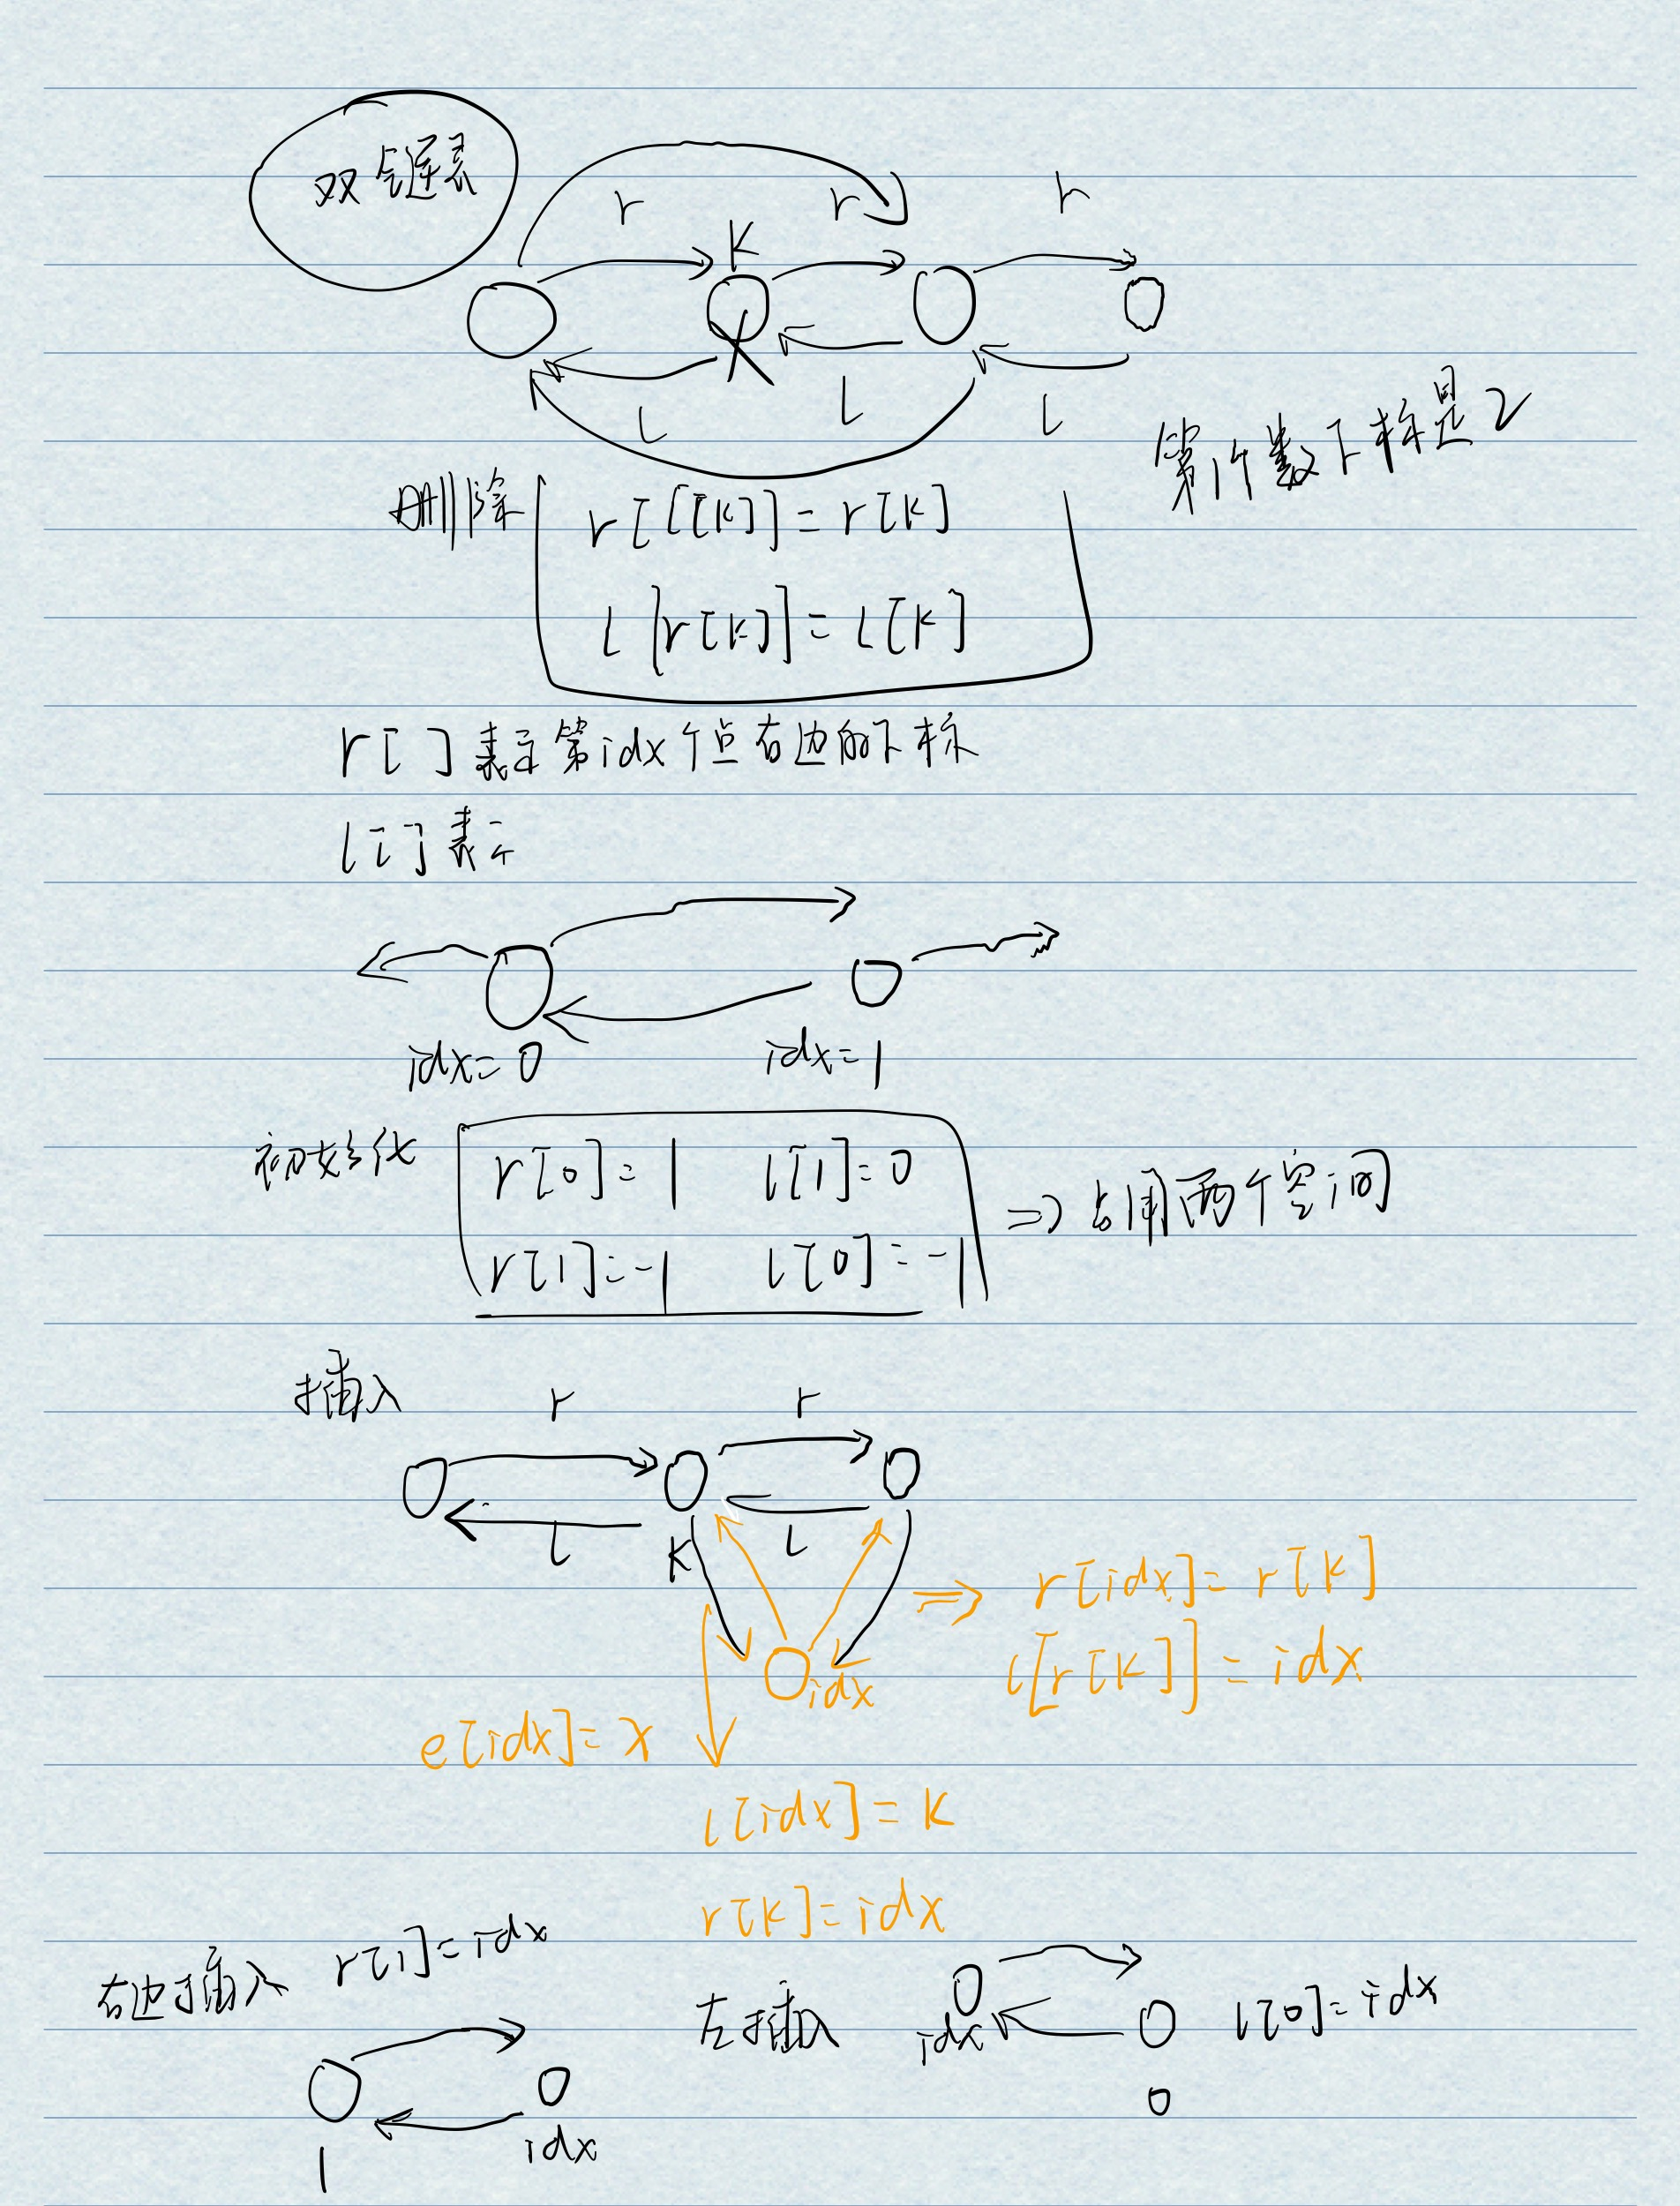 双链表
r r r
K
l l l
第1个数下标是2
删除
r[l[k]]=r[k]
l[r[k]]=l[k]
r[ ] 表示第idx个点右边的下标
l[ ] 表示
idx=0 idx=1
初始化
r[0]=1 l[1]=0
r[1]=-1 l[0]=-1
=> 占用两个空间
插入
r r
l K l
idx
=> r[idx]=r[k]
l[r[k]]=idx
e[idx]=x
l[idx]=k
r[k]=idx
右边插入 r[1]=idx
1 idx
左插入 idx 0 l[0]=idx